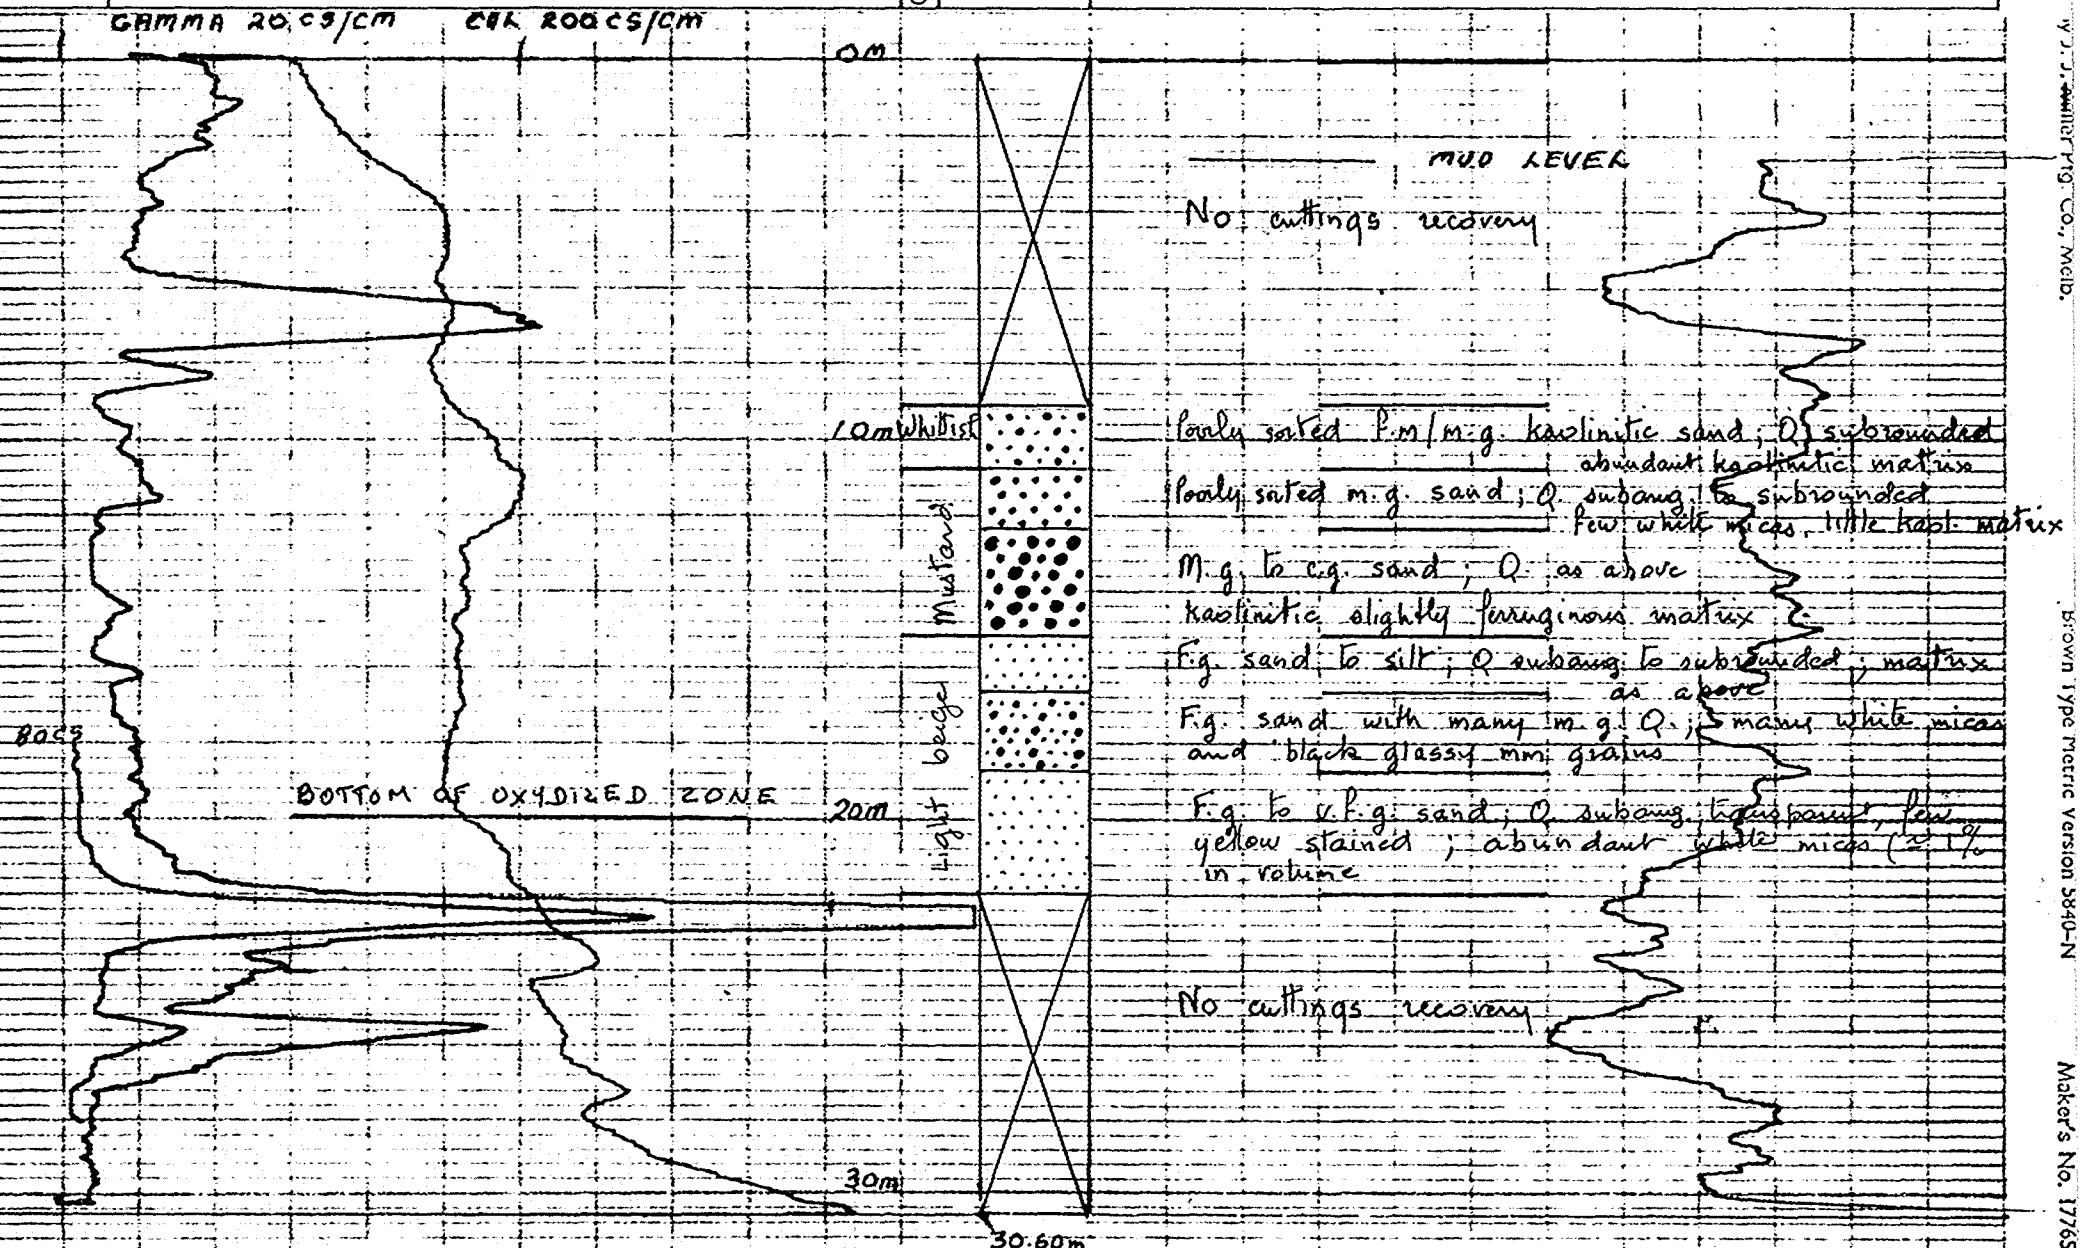 GAMMA 20 CS/CM
200 CS/CM
0m
MUD LEVEL
No cuttings recovery
10m
Whitish
Poorly sorted f.m/m.g. kaolinitic sand; Q subrounded
abundant kaolinitic matrix
Poorly sorted m.g. sand; Q. subang. to subrounded
few white micas, little kaol. matrix
Mustard
M.g. to c.g. sand; Q. as above
kaolinitic slightly ferruginous matrix
F.g. sand to silt; Q subang. to subrounded; matrix
as above
Light beige
F.g. sand with many m.g. Q.; many white micas
and black glassy mm grains
80CS
BOTTOM OF OXYDIZED ZONE
20m
F.g. to v.f.g. sand; Q subang. transparent, few
yellow stained; abundant white micas (≃ 1%
in volume
No cuttings recovery
30m
30.60m
Co., Melb.
Brown Type Metric Version 5840-N
Maker's No. 17765